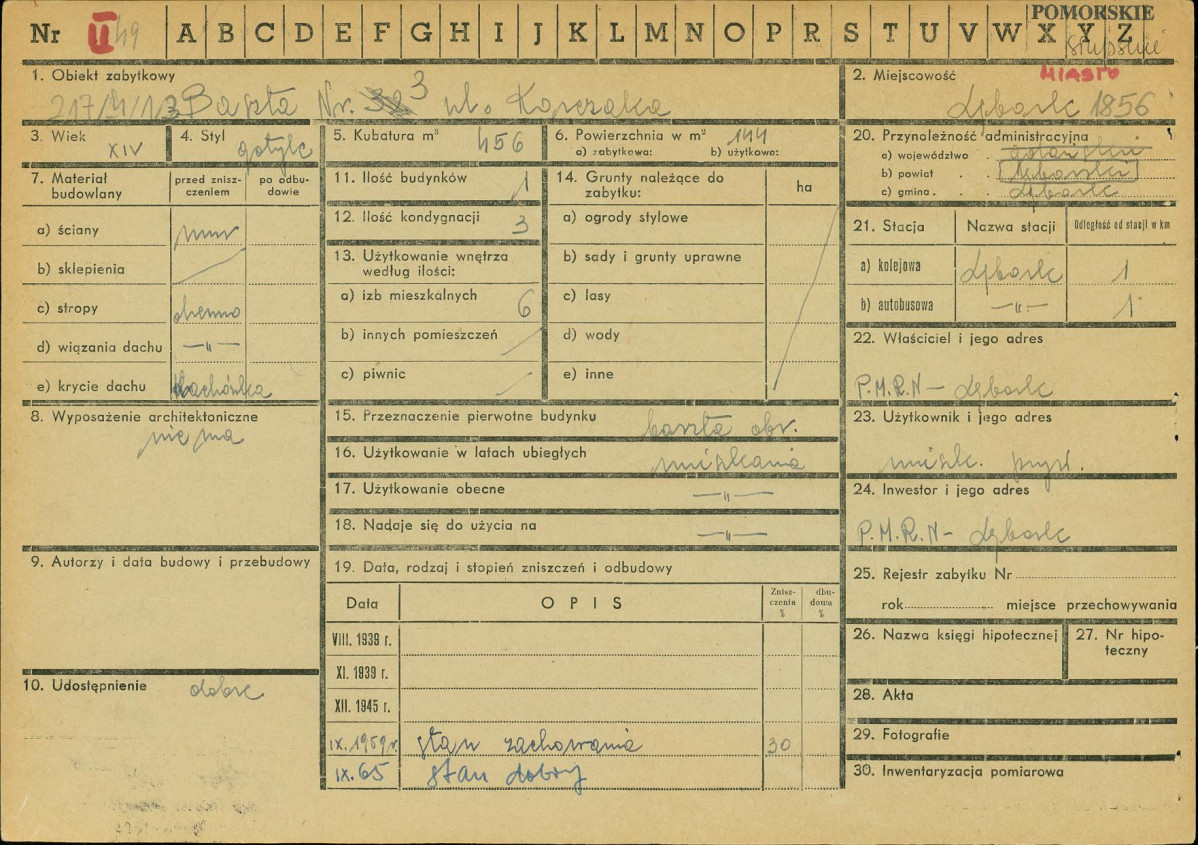 Nr II 49 A B C D E F G H I J K L M N O P R S T U V W X Y Z
POMORSKIE
słupskie
MIASTO
1. Obiekt zabytkowy
Baszta Nr. 3 ul. Korczaka
2. Miejscowość
Lębork 1856
3. Wiek
XIV
4. Styl
gotyk
5. Kubatura m³ 456
6. Powierzchnia w m² 144
a) zabytkowa: b) użytkowo:
7. Materiał budowlany
przed zniszczeniem
po odbudowie
a) ściany mur
b) sklepienia
c) stropy drewno
d) wiązania dachu —"—
e) krycie dachu dachówka
8. Wyposażenie architektoniczne
nie ma
9. Autorzy i data budowy i przebudowy
10. Udostępnienie dobre
11. Ilość budynków 1
12. Ilość kondygnacji 3
13. Użytkowanie wnętrza
według ilości:
a) izb mieszkalnych 6
b) innych pomieszczeń
c) piwnic
14. Grunty należące do
zabytku:
ha
a) ogrody stylowe
b) sady i grunty uprawne
c) lasy
d) wody
e) inne
15. Przeznaczenie pierwotne budynku baszta obr.
16. Użytkowanie w latach ubiegłych mieszkania
17. Użytkowanie obecne —"—
18. Nadaje się do użycia na —"—
19. Data, rodzaj i stopień zniszczeń i odbudowy
Data OPIS Znisz-czenia % dbu-dowa %
VIII. 1939 r.
XI. 1939 r.
XII. 1945 r.
IX. 1959 r. stan zachowania 30
IX. 65 stan dobry
20. Przynależność administracyjna
a) województwo gdańskie
b) powiat lęborski
c) gmina Lębork
21. Stacja Nazwa stacji Odległość od stacji w km
a) kolejowa Lębork 1
b) autobusowa —"— 1
22. Właściciel i jego adres
P.M.R.N – Lębork
23. Użytkownik i jego adres
mieszk. pryw.
24. Inwestor i jego adres
P.M.R.N – Lębork
25. Rejestr zabytku Nr
rok miejsce przechowywania
26. Nazwa księgi hipotecznej
27. Nr hipo-
teczny
28. Akta
29. Fotografie
30. Inwentaryzacja pomiarowa